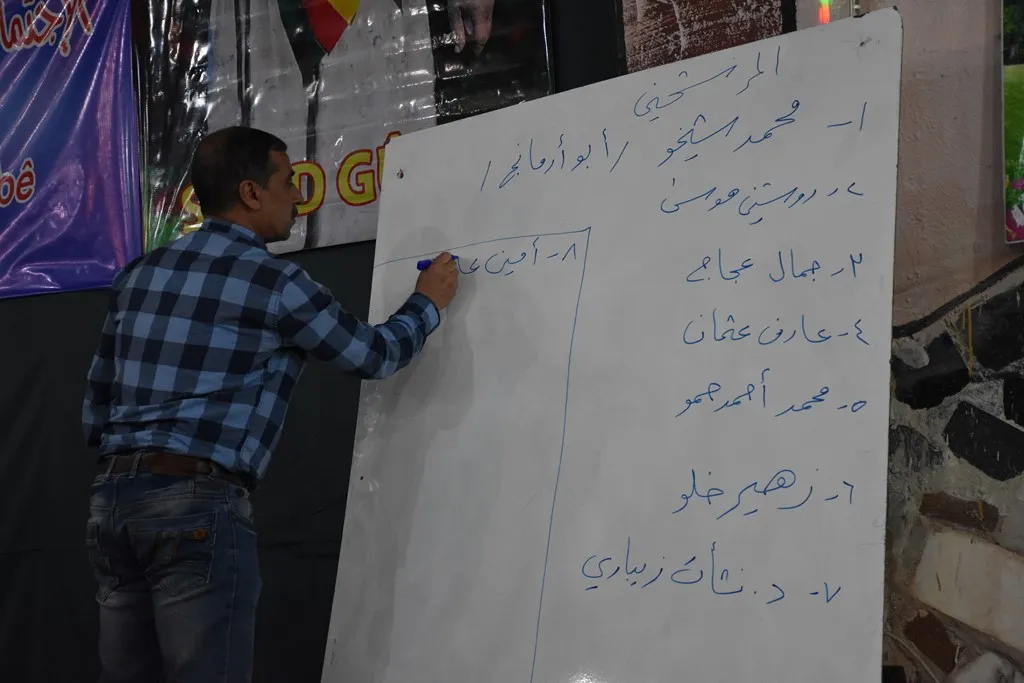 المرشحين
١- محمد الشيخو /أبو أرمانج/
٢- روستين موسى
٣- جمال عجاج
٤- عارف عثمان
٥- محمد أحمد حمو
٦- زهير خلو
٧- د. نشأت زيباري
٨- أمين عا